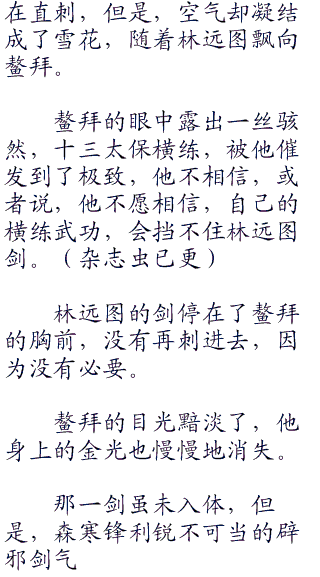 在直刺，但是，空气却凝结
成了雪花，随着林远图飘向
鳌拜。
鳌拜的眼中露出一丝骇
然，十三太保横练，被他催
发到了极致，他不相信，或
者说，他不愿相信，自己的
横练武功，会挡不住林远图
剑。（杂志虫已更）
林远图的剑停在了鳌拜
的胸前，没有再刺进去，因
为没有必要。
鳌拜的目光黯淡了，他
身上的金光也慢慢地消失。
那一剑虽未入体，但
是，森寒锋利锐不可当的辟
邪剑气